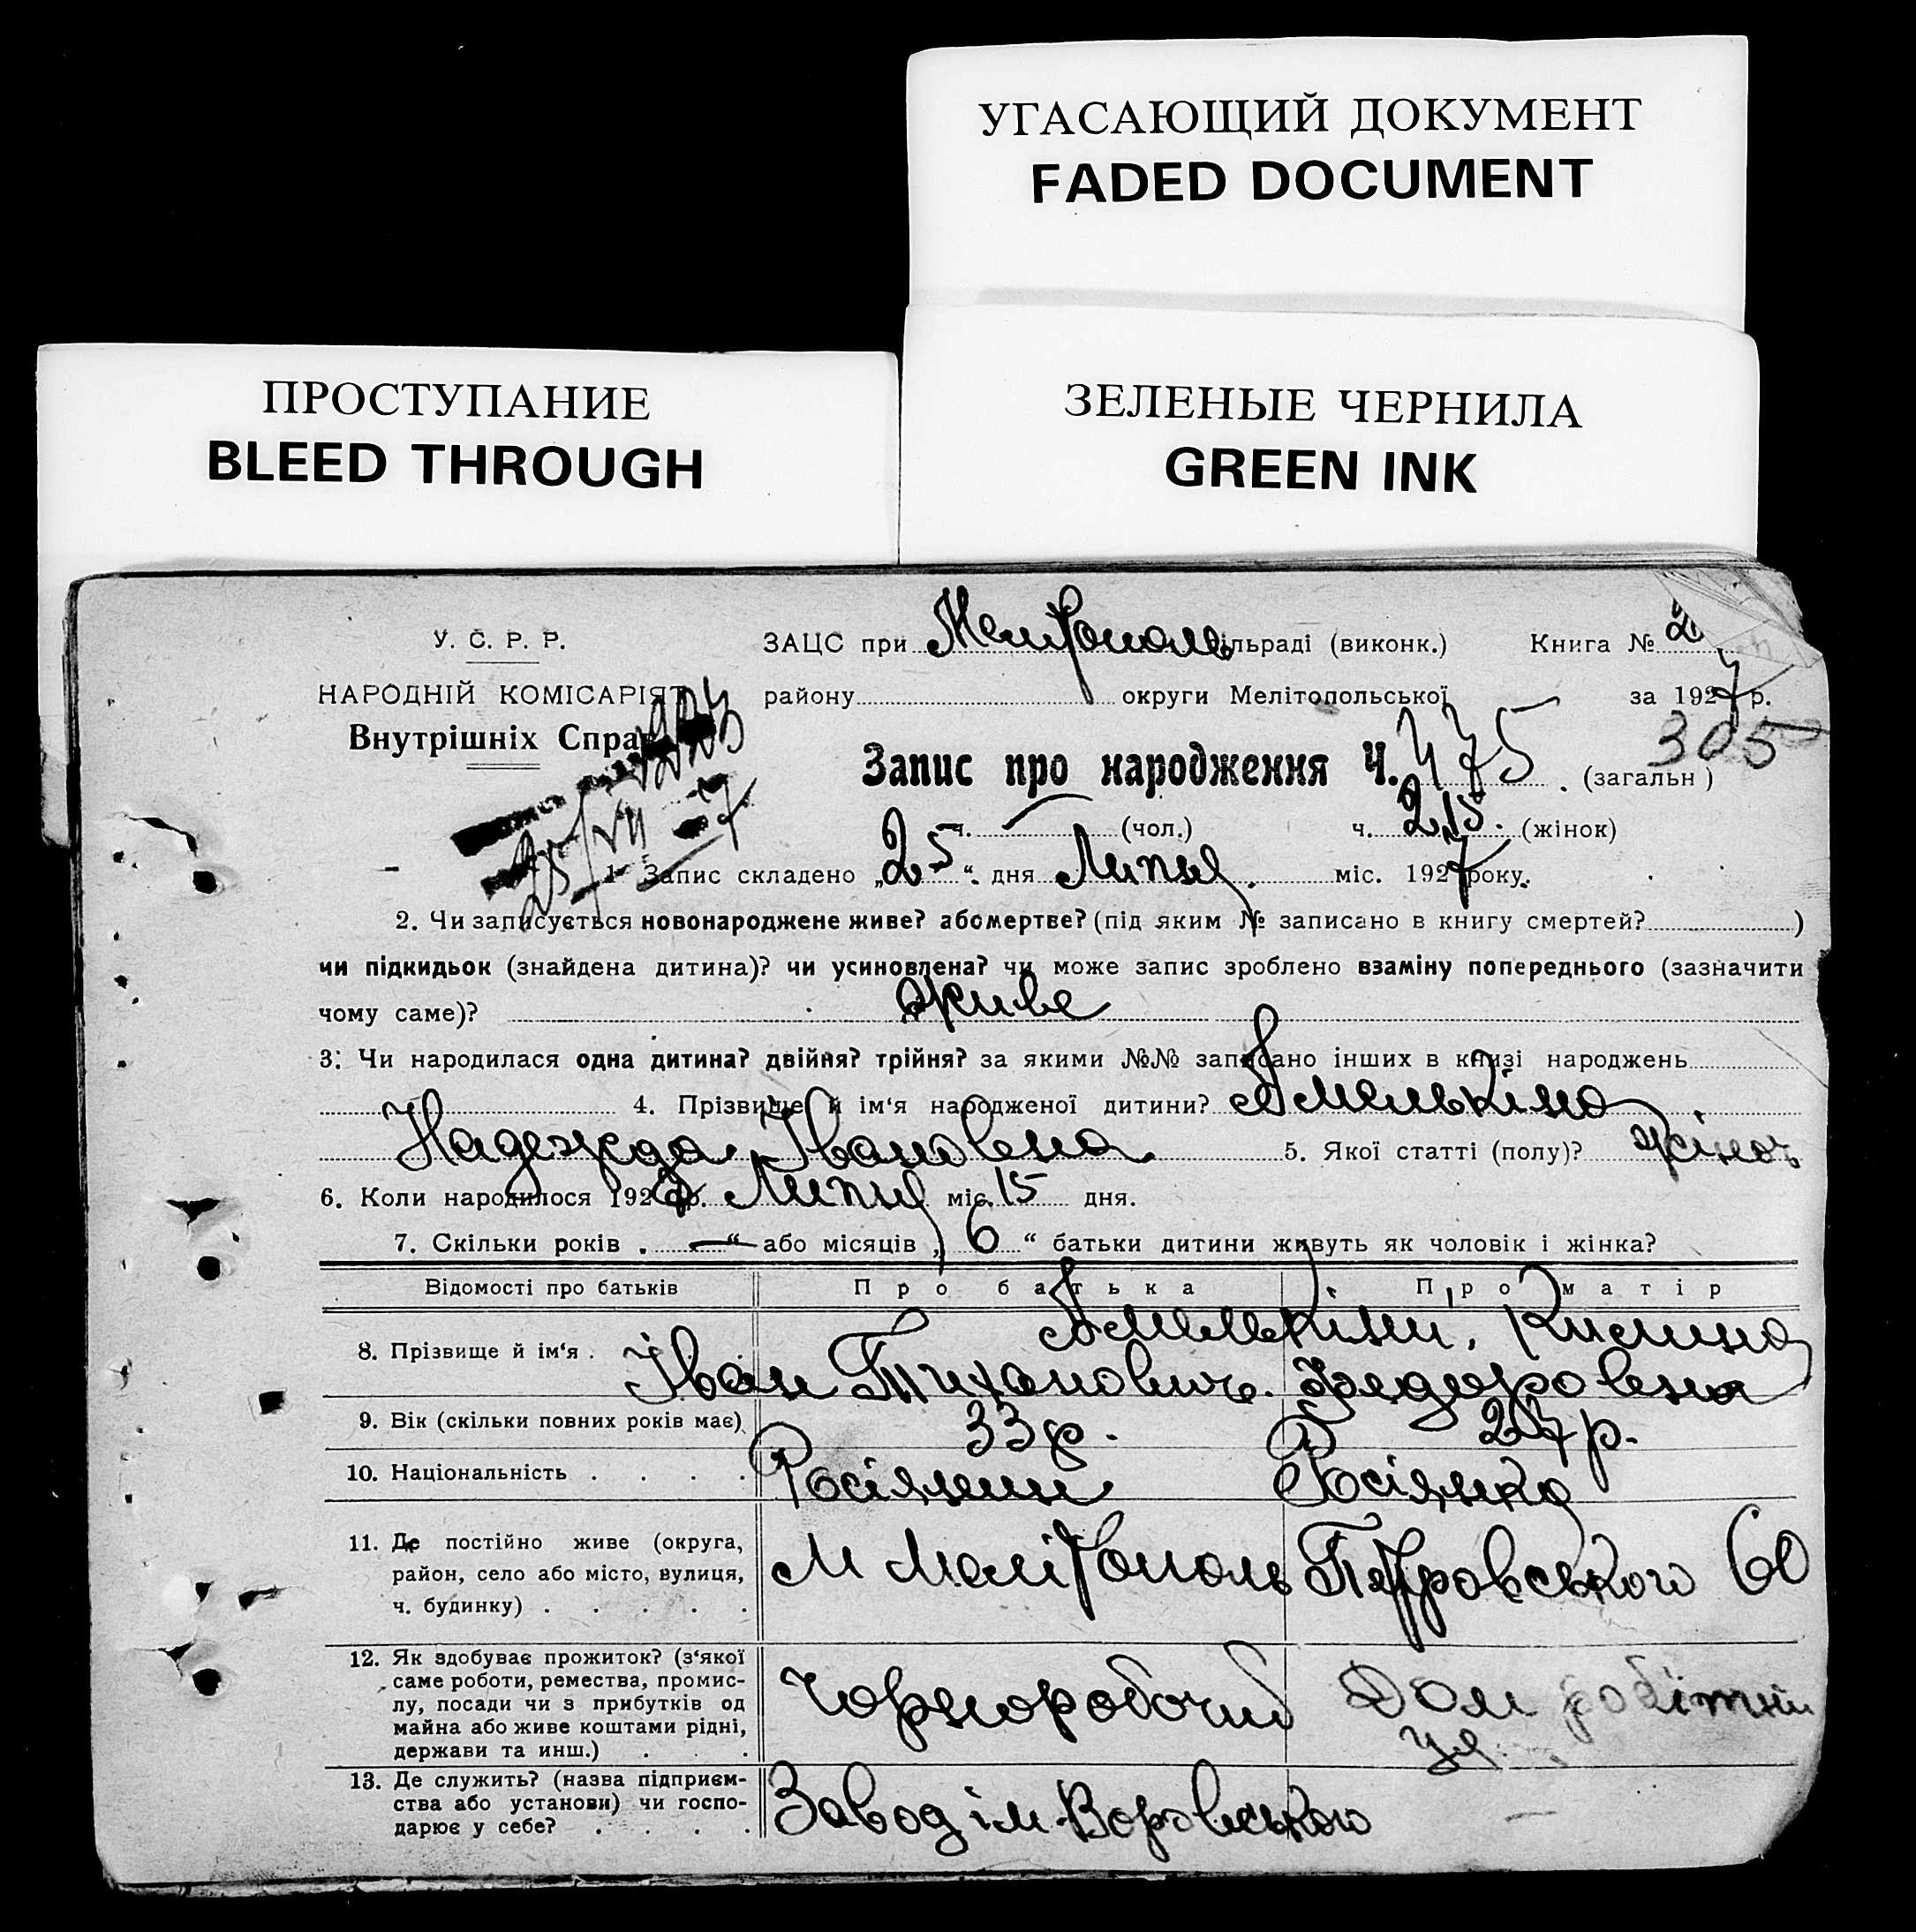 УГАСАЮЩИЙ ДОКУМЕНТ
FADED DOCUMENT
ПРОСТУПАНИЕ
BLEED THROUGH
ЗЕЛЕНЫЕ ЧЕРНИЛА
GREEN INK
У. С. Р. Р.
НАРОДНІЙ КОМІСАРІЯТ
Внутрішніх Справ
25/VII 27
ЗАЦС при Мелітополь ільраді (виконк.) Книга № 2
району округи Мелітопольської за 1927 р.
305
Запис про народження Ч. 475. (загальн)
ч. — (чол.) ч. 215. (жінок)
1. Запис складено „25“ дня Липня міс. 1927 року.
2. Чи записується новонароджене живе? або мертве? (під яким № записано в книгу смертей? )
чи підкидьок (знайдена дитина)? чи усиновлена? чи може запис зроблено взаміну попереднього (зазначити
чому саме)? живе
3. Чи народилася одна дитина? двійня? трійня? за якими №№ записано інших в книзі народжень
4. Прізвище й ім‘я народженої дитини? Амелькіна
Надежда Івановна 5. Якої статті (полу)? жіноч
6. Коли народилося 1927 р. Липня міс. 15 дня.
7. Скільки років „—“ або місяців „6“ батьки дитини живуть як чоловік і жінка?
Відомості про батьків Про батька Про матір
8. Прізвище й ім‘я . Амелькіни,
Іван Тихановичь. Федоровна
9. Вік (скільки повних років має) 33 р. 27 р.
10. Національність . . . . Росіянин Росіянка
11. Де постійно живе (округа,
район, село або місто, вулиця,
ч. будинку) . . . . .
М Мелітополь Петровського 60
12. Як здобуває прожиток? (з‘якої
саме роботи, ремества, промис-
лу, посади чи з прибутків од
майна або живе коштами рідні,
держави та инш.) . . .
Чорноробочий Дом робітни
ця
13. Де служить? (назва підприєм-
ства або установи) чи госпо-
дарює у себе? . . . .
Завод ім. Воровського —